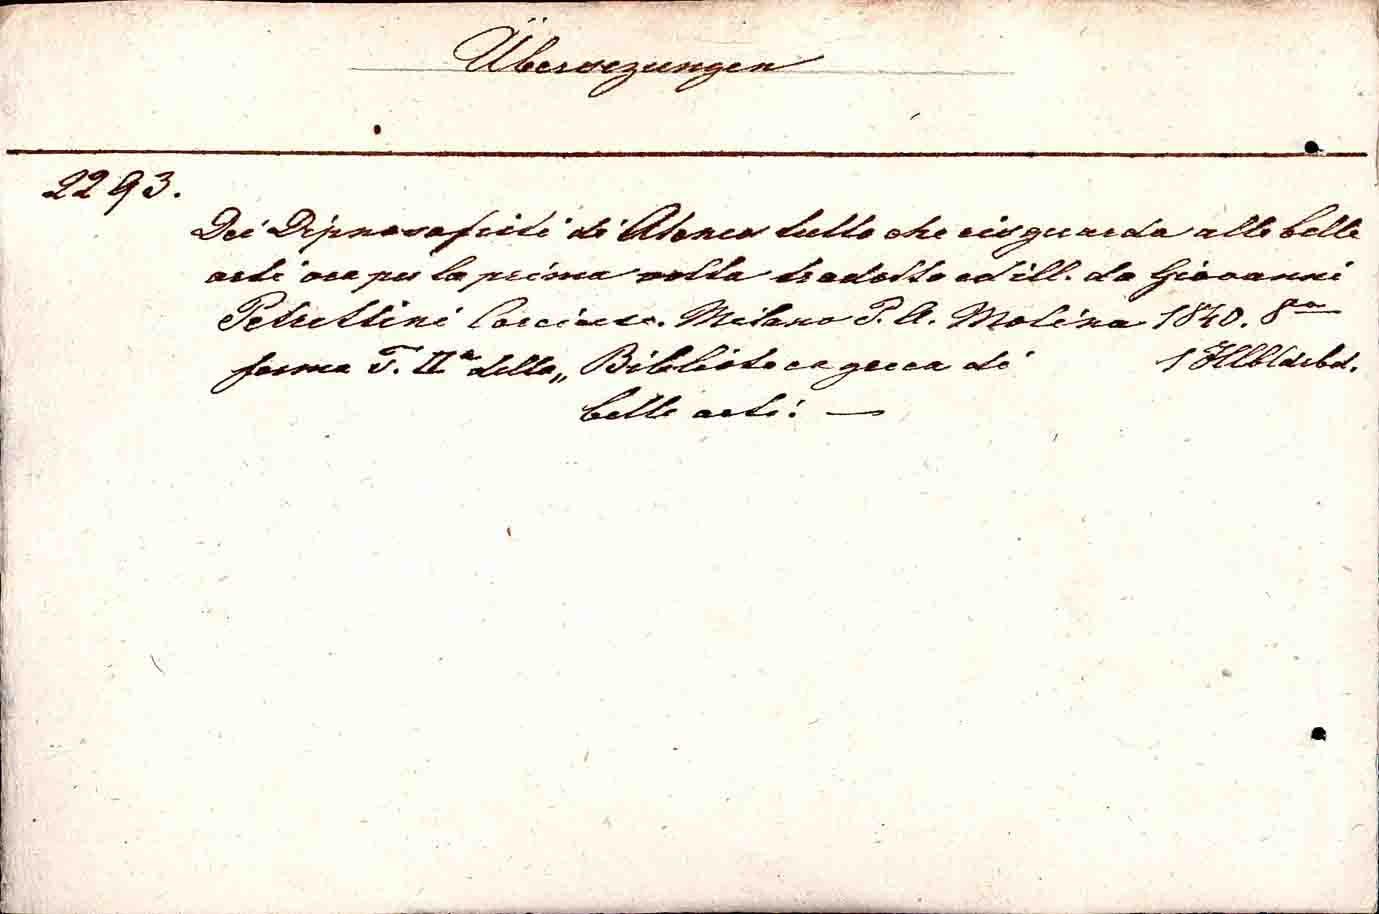 Übersezungen
2293.
Dei Dipnosofisti di Ateneo tutto che risguarda alle belle
arti ora per la prima volta tradotto ed ill. da Giovanni
Petrettini Corcirese. Milano P. A. Molina 1840. 8vo
forma T. IIº della „Biblioteca greca di 1 Hlbldrbd.
belle arti: —